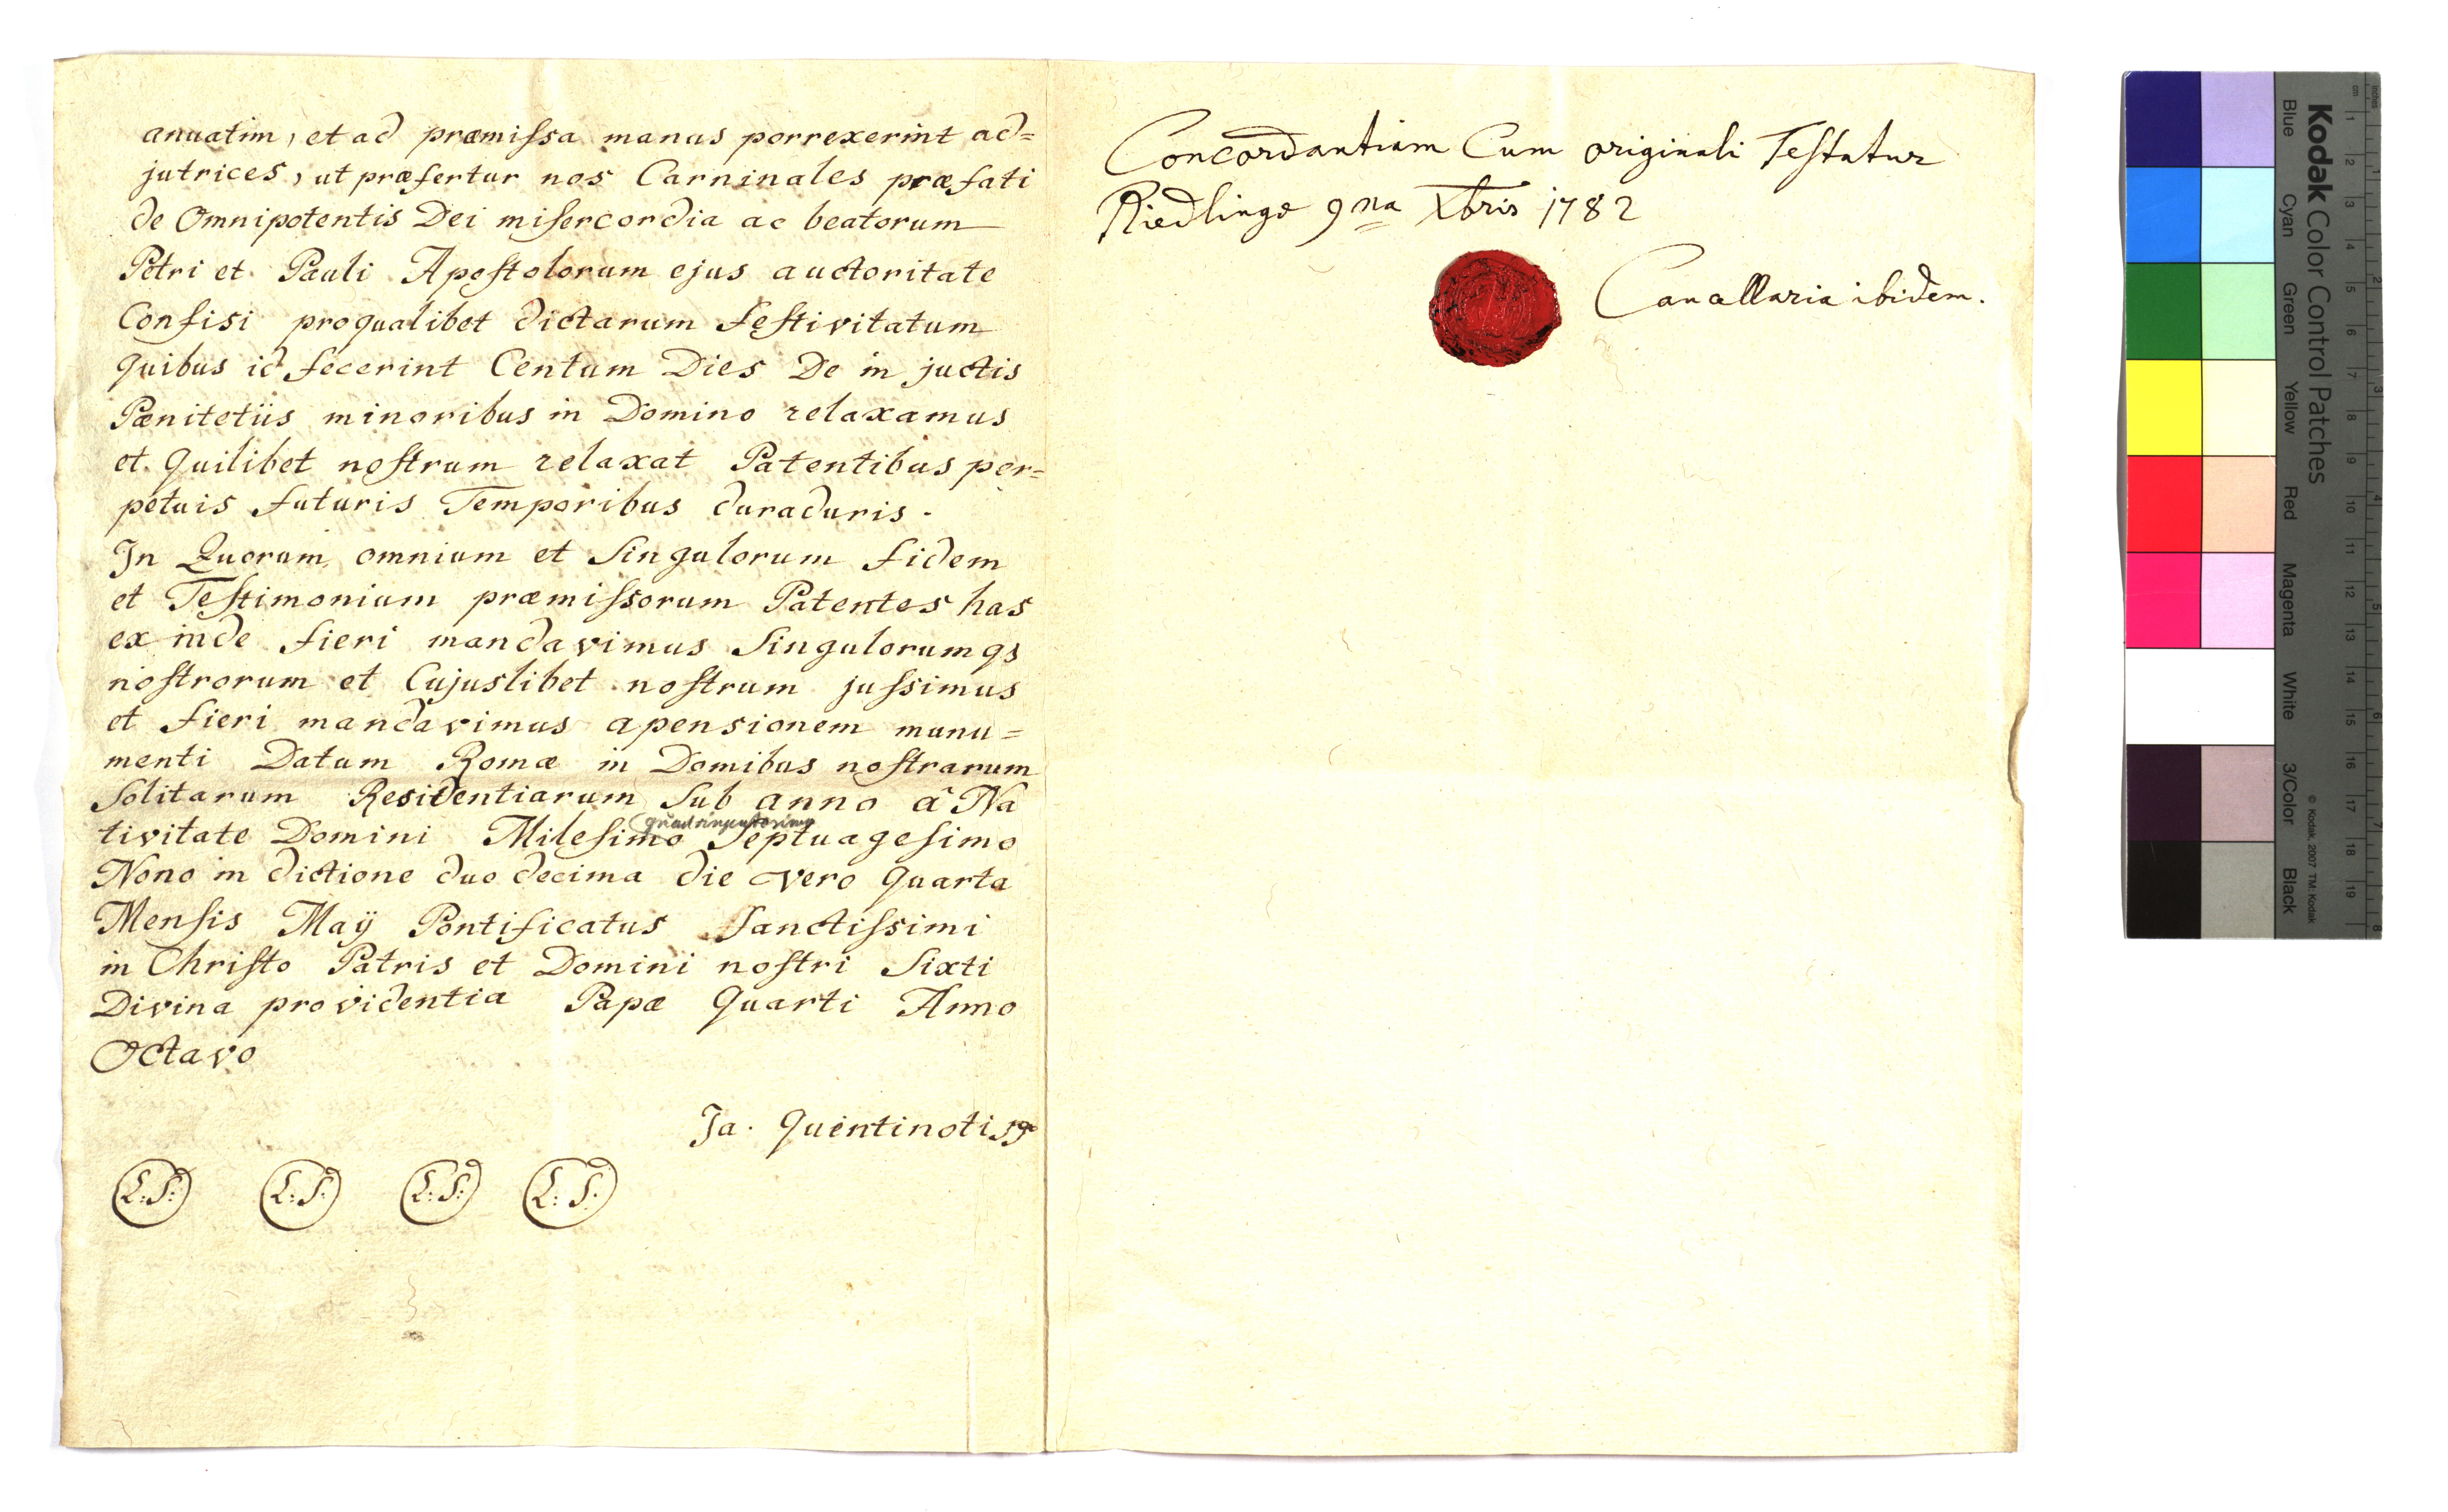 anuatim, et ad præmiſsa manus porrexerint ad=
jutrices, ut præfertur nos Carninales præfati
de Omnipotentis Dei miſercordia ac beatorum
Petri et Pauli Apoſtolorum ejus auctoritate
Confisi proqualibet dictarum feſtivitatum
quibus id fecerint Centum Dies De in juctis
Pænitetiis minoribus in Domino relaxamus
et quilibet noſtrum relaxat Patentibus per=
petuis futuris Temporibus duraduris.
In Quorum omnium et Singulorum fidem
et Teſtimonium præmiſsorum Patentes has
ex inde fieri mandavimus Singulorumqs
noſtrorum et Cujuslibet noſtrum juſsimus
et fieri mandavimus apensionem munu=
menti Datum Romæ in Domibus noſtrarum
Solitarum Residentiarum Sub anno à Na
quadringentesimo
tivitate Domini Mileſimo Septuageſimo
Nono in dictione duo decima die vero quarta
Menſis Maÿ Pontificatus Sanctiſsimi
in Chriſto Patris et Domini noſtri Sixti
Divina providentia Papæ Quarti Anno
Octavo
Ja. Quentinotis
L:S: L:S: L:S: L:S:
Concordantiam Cum originali Teſtatur
Riedlingæ 9na Xbris 1782
Cancellaria ibidem.
Kodak Color Control Patches
Blue Cyan Green Yellow Red Magenta White 3/Color Black
© Kodak, 2007 TM: Kodak
cm 1 2 3 4 5 6 7 8 9 10 11 12 13 14 15 16 17 18 19
inches 1 2 3 4 5 6 7 8